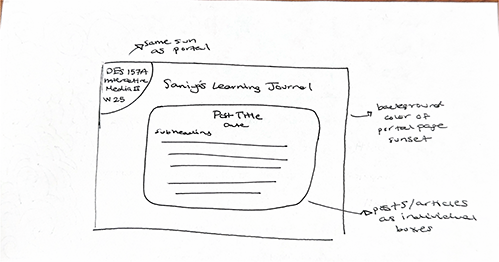 same sun
as portal
DES 157A
Interactive
Media II
W25
Saniya's Learning Journal
Post Title
Date
subheading
background
color of
portal page
sunset
posts/articles
as individual
boxes